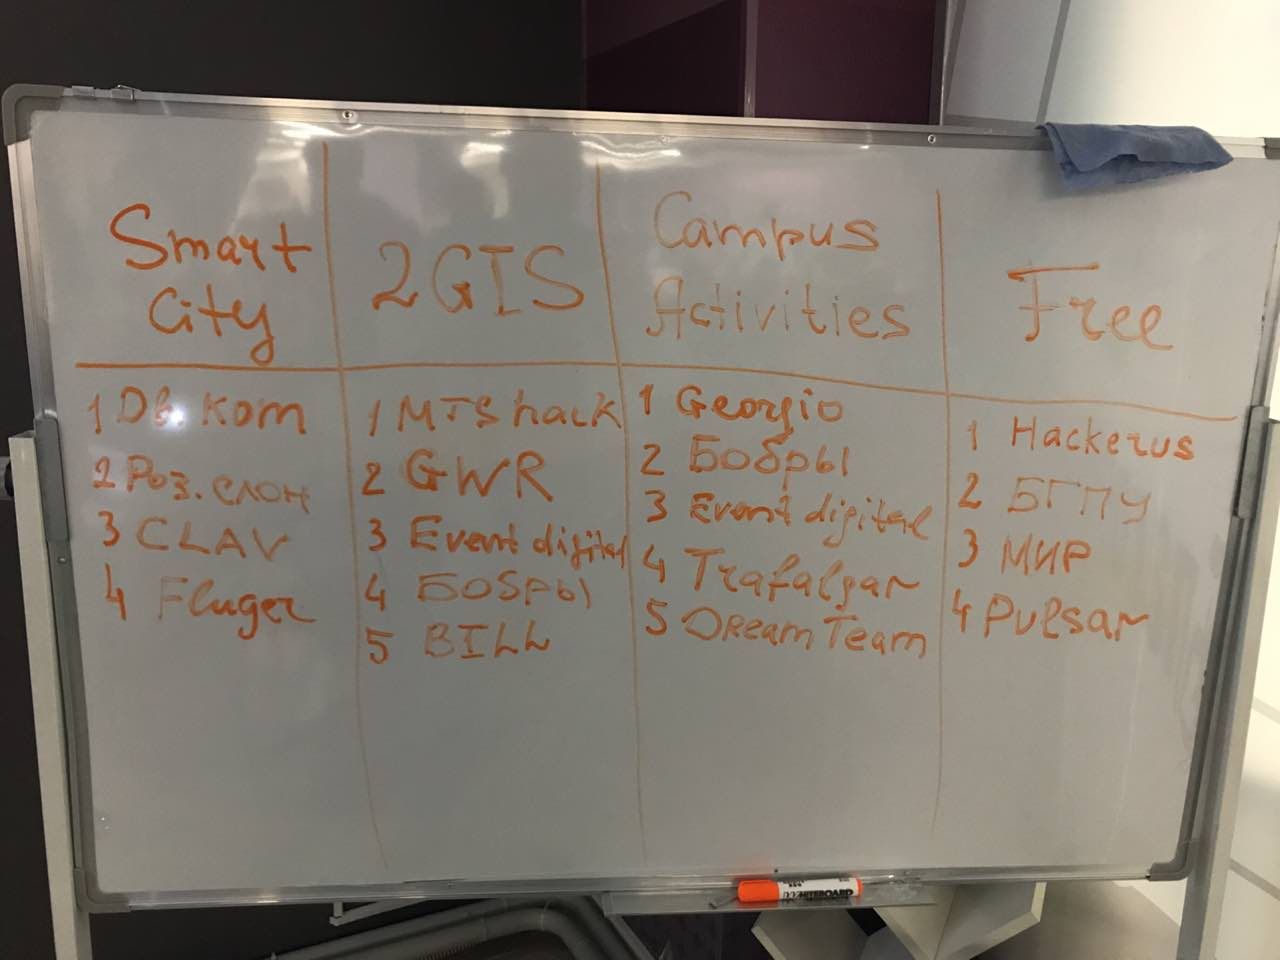 Smart
City
2GIS
Campus
Activities
Free
1 Дв. ком
2 Роз. слон
3 CLAV
4 Fluger
1 MTS hack
2 GWR
3 Event digital
4 БОБРЫ
5 BILL
1 Georgio
2 Бобры
3 Event digital
4 Trafalgar
5 Dream Team
1 Hackerus
2 БГПУ
3 МИР
4 Pulsar
WHITEBOARD